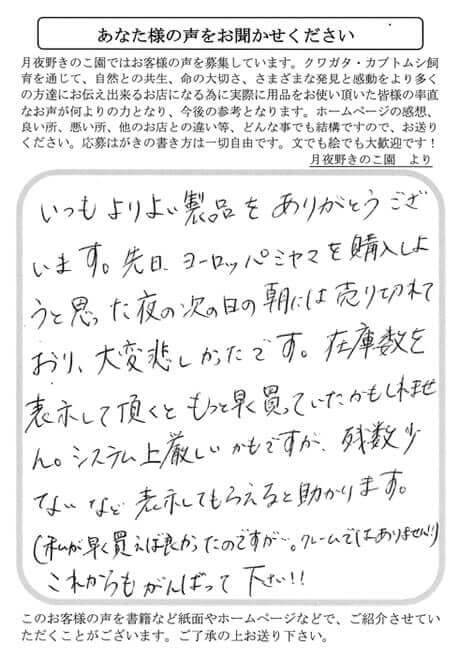 あなた様の声をお聞かせください
月夜野きのこ園ではお客様の声を募集しています。クワガタ・カブトムシ飼
育を通じて、自然との共生、命の大切さ、さまざまな発見と感動をより多く
の方達にお伝え出来るお店になる為に実際に用品をお使い頂いた皆様の率直
なお声が何よりの力となり、今後の参考となります。ホームページの感想、
良い所、悪い所、他のお店との違い等、どんな事でも結構ですので、お送り
ください。応募はがきの書き方は一切自由です。文でも絵でも大歓迎です！
月夜野きのこ園　より
いつもよりよい製品をありがとうござ
います。先日ヨーロッパミヤマを購入しよ
うと思った夜の次の日の朝には売り切れて
おり、大変悲しかったです。在庫数を
表示して頂くともっと早く買っていたかもしれませ
ん。システム上厳しいかもですが、残数少
ないなど表示してもらえると助かります。
(私が早く買えば良かったのですが…。クレームではありません!!)
これからもがんばって下さい!!
このお客様の声を書籍など紙面やホームページなどで、ご紹介させてい
ただくことがございます。ご了承の上お送り下さい。